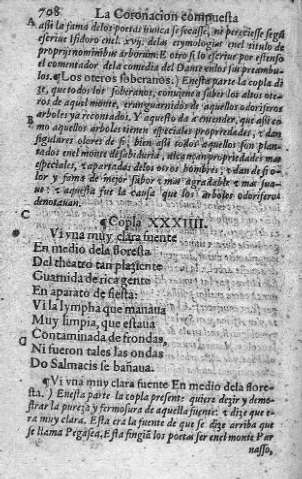 708 La Coronacion compuesta
A assi la fama delos poetas nunca se secasse, ni peresciesse segũ
escriue Isidoro enel .xvij. delas etymologias enel titulo de
proprijs nominibus arborum. E otro si lo escriue por estenso
el comentador dela comedia del Dante enlos sus preambu-
los. ¶Los oteros soberanos.) Enesta parte la copla di
ze, que todos los soberanos, conuiene a saber los altos ote
ros de aquel monte, eran guarnidos de aquellos odoriferos
B arboles ya recontados. Y aquesto da a entender, que assi co
mo aquellos arboles tienen especiales propriedades, z dan
singulares olores de si, bien assi todos aquellos son plan-
tados enel monte de sabiduria, alcançan propriedades mas
especiales, z apartadas delos otros hombres, z dan de si o-
lor y fama de mejor sabor z mas agradable z mas sua-
ue: z aquesta fue la causa que los arboles odoriferos
denotauan.
C
¶Copla XXXIIII.
Vi vna muy clara fuente
En medio dela floresta
Del theatro tan plaziente
Guarnida de rica gente
En aparato de fiesta:
Vi la lympha que manaua
Muy limpia, que estaua
D Contaminada de frondas,
Ni fueron tales las ondas
Do Salmacis se bañaua.
¶Vi vna muy clara fuente En medio dela flore-
sta. ) Enesta parte la copla presente quiere dezir y demo-
strar la pureza y fermosura de aquella fuente: z dize que e-
ra muy clara. Esta era la fuente de que se dize arriba que
se llama Pegasea. Esta fingiã los poetas ser enel monte Par
nasso,